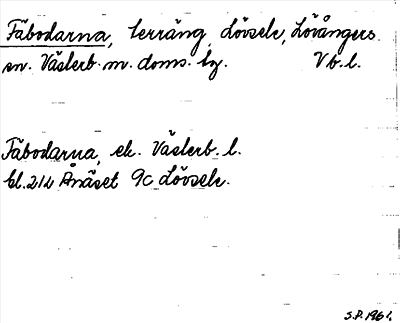 Fäbodarna, terräng, Lövsele, Lövångers
sn. Västerb. m. doms. hg. Vb. l.
Fäbodarna, ek. Västerb. l.
bl. 212 Ånäset 9c Lövsele.
S.P. 1961.